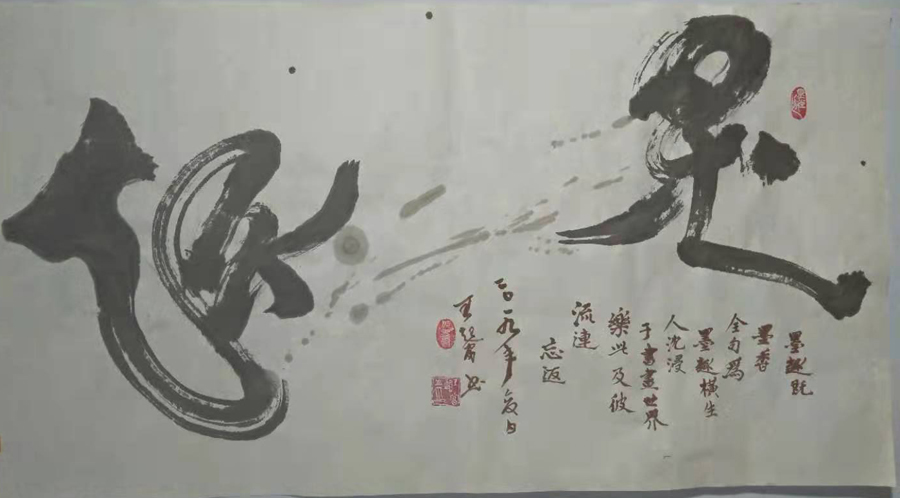 墨趣
墨趣既
墨香
全句爲
墨趣橫生
人沈浸
于書畫世界
樂此及彼
流連
忘返
二〇一九年夏日